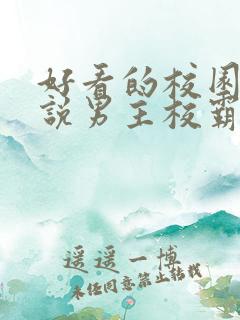 好看的校园
説男主校霸
遥遥一博
未经同意禁止转载